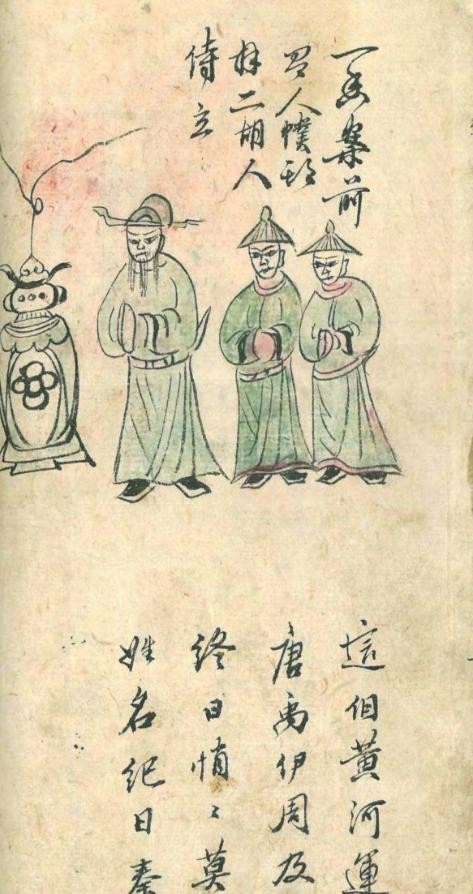 一香案前
一人幞頭
二胡人
侍立
這個黃河運
唐禹伊周及
終日悄〻莫
姓名紀日秦